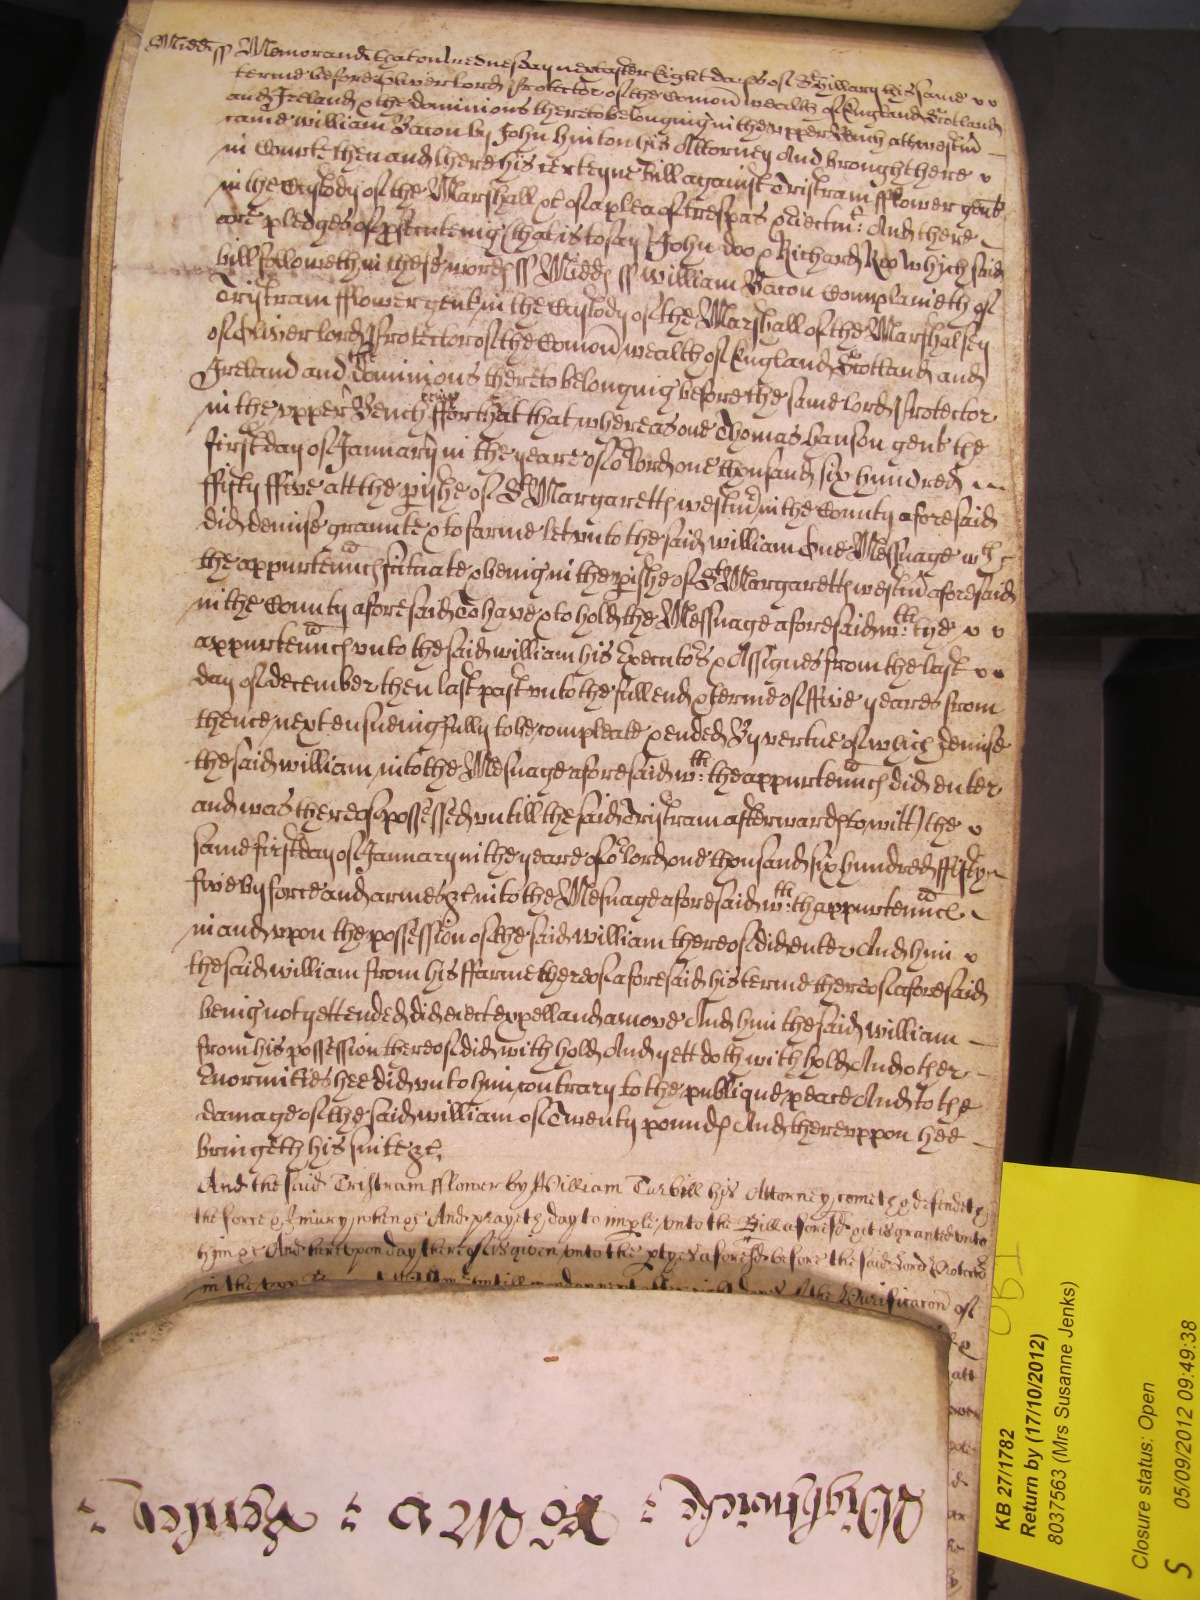 Midd ss Memorand that on Wednesday next after Eight dayes of St Hillary this same
terme before Oliver lord Protector of the Comon wealth of England Scotland
and Ireland & the dominions thereto belonging in the upper Bench att westm
came william Bacon by John Hinton his Attorney And brought here
in Courte then and there his certeyne Bill against Tristram fflower gent
in the Custody of the Marshall &c of a plea of trespas & eiectmt: And there
are pledges of psecuteing (that is to say) John doo & Richard Roo which said
bill followeth in these words ss Midd ss william Bacon Complaineth of
Tristram fflower gent in the Custody of the Marshall of the Marshalsey
of Oliver lord Protector of the Comon wealth of England Scotland and
Ireland and the dominions thereto belonging before the same lord Protector
in the upper Bench ffor that that whereas one Thomas Hanson gent the
first day of January in the yeare of or lord one thousand six hundred
ffifty ffive att the pishe of St Margaretts westm in the County aforesaid
did demise graunte & to farme let unto the said william One Messuage wth
the appurtennces scituate & being in the pishe of St Margaretts westm aforesaid
in the County aforesaid To have & to hold the Messuage aforesaid wth: the
appurtennces unto the said william his Executors & Assignes from the last
day of december then last past unto the full end & terme of ffive yeares from
thence next ensueing fully to be compleate & ended By vertue of which demise
the said william into the Messuage aforesaid wth: the appurtennces did enter
and was thereof possessed untill the said Tristram afterwards (to witt) the
same first day of January in the yeare of or lord one thousand six hundred ffifty
five by force and armes &c into the Messuage aforesaid wth: th appurtennces
in and upon the possession of the said william thereof did enter And him
the said william from his ffarme thereof aforesaid his terme thereof aforesaid
being not yett ended did eiect expell and amove And him the said william
from his possession thereof did with hold And yett doth with hold And other
Enormities hee did unto him contrary to the publique peace And to the
damage of the said william of Twenty pounds And thereuppon hee
bringeth his suite &c.
And the said Tristram fflower by William Turbill his Attorney cometh & defendeth
the force & iniury when &c And prayeth day to imple unto the Bill aforesd & it is granted unto
him &c And hereupon day thereof is given unto the ptyes aforesd before the said Lord Protector
in the of the Purificacon of
KB 27/1782
Return by (17/10/2012)
8037563 (Mrs Susanne Jenks)
Closure status: Open
05/09/2012 09:49:38
S